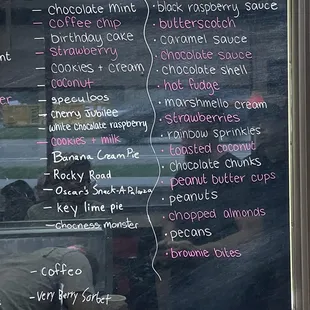 - chocolate mint
- coffee chip
- birthday cake
- strawberry
- cookies + cream
- coconut
- speculoos
- cherry jubilee
- white chocolate raspberry
- cookies + milk
- Banana Cream Pie
- Rocky Road
- Oscar's Snack-A-Palooza
- key lime pie
- chocness monster
- coffeo
- Very Berry Sorbet
• black raspberry sauce
• butterscotch
• caramel sauce
• chocolate sauce
• chocolate shell
• hot fudge
• marshmello cream
• strawberries
• rainbow sprinkles
• toasted coconut
• chocolate chunks
• peanut butter cups
• peanuts
• chopped almonds
• pecans
• brownie bites